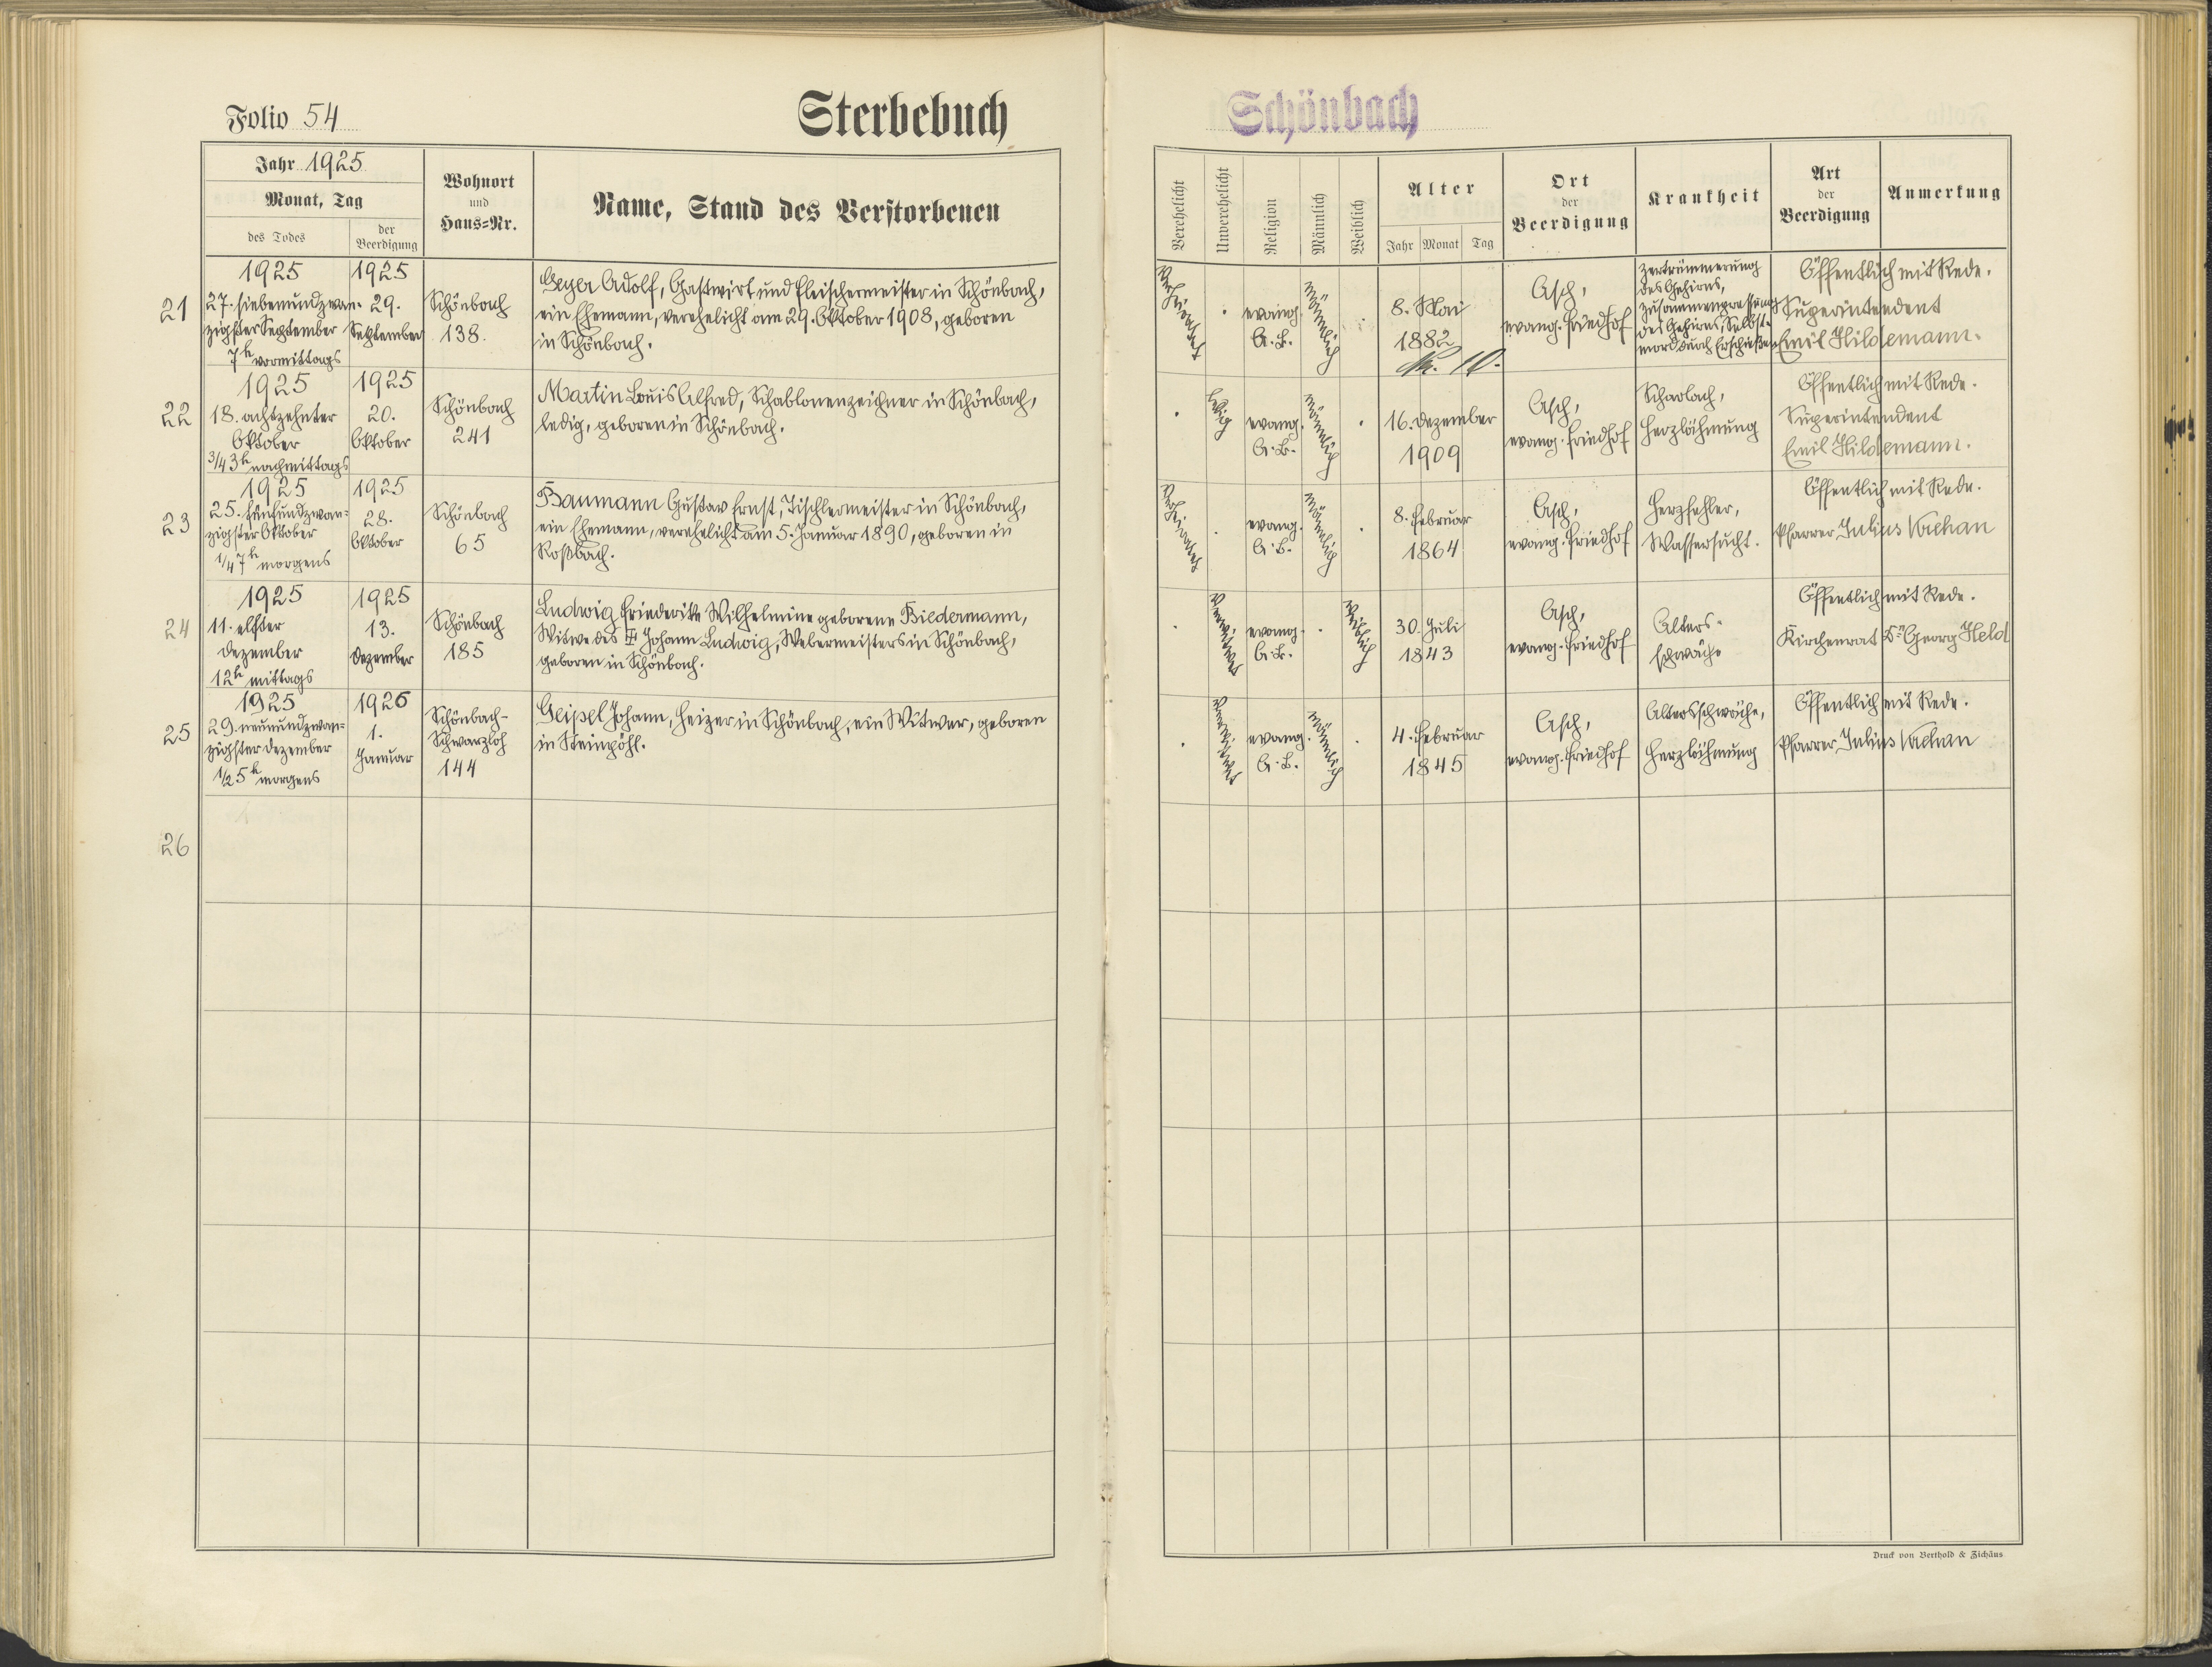 Folio 54
Sterbebuch
Schönbach
Jahr 1925
Monat, Tag
des Todes
der
Beerdigung
Wohnort
und
Haus-Nr.
Name, Stand des Verstorbenen
Verehelicht
Unverehelicht
Religion
Männlich
Weiblich
Alter
Jahr Monat Tag
Ort
der
Beerdigung
Krankheit
Art
der
Beerdigung
Anmerkung
21
1925
27. siebenundzwan-
zigster September
7h vormittags
1925
29.
September
Schönbach
138.
Geyer Adolf, Gastwirt und Fleischermeister in Schönbach,
ein Ehemann, verehelicht am 29. Oktober 1908, geboren
in Schönbach.
Verheiratet
evang.
A.B.
männlich
8. Mai
1882
Asch,
evang. Friedhof
Zertrümmerung
des Gehirns,
Zusammenpressung
des Gehirns, Selbst-
mord durch Erschießen
Öffentlich mit Rede.
Superintendent
Emil Hildemann.
22
1925
18. achtzehnter
Oktober
3/4 3h nachmittags
1925
20.
Oktober
Schönbach
241
Martin Louis Alfred, Schablonenzeichner in Schönbach,
ledig, geboren in Schönbach.
ledig
evang.
A.B.
männlich
16. Dezember
1909
Asch,
evang. Friedhof
Scharlach,
Herzlähmung
Öffentlich mit Rede.
Superintendent
Emil Hildemann.
23
1925
25. fünfundzwan-
zigster Oktober
1/4 7h morgens
1925
28.
Oktober
Schönbach
65
Baumann Gustav Ernst, Tischlermeister in Schönbach,
ein Ehemann, verehelicht am 5. Januar 1890, geboren in
Roßbach.
Verheiratet
evang.
A.B.
männlich
8. Februar
1864
Asch,
evang. Friedhof
Herzfehler,
Wassersucht.
Öffentlich mit Rede.
Pfarrer Julius Kachan
24
1925
11. elfter
Dezember
12h mittags
1925
13.
Dezember
Schönbach
185
Ludwig Friederike Wilhelmine geborene Biedermann,
Witwe des Johann Ludwig, Webermeisters in Schönbach,
geboren in Schönbach.
Verwitwet
evang.
A.B.
Weiblich
30. Juli
1843
Asch,
evang. Friedhof
Alters-
schwäche
Öffentlich mit Rede.
Kirchenrat Dr Georg Held
25
1925
29. neunundzwan-
zigster Dezember
1/2 5h morgens
1926
1.
Januar
Schönbach-
Schwarzloh
144
Geipel Johann, Heizer in Schönbach, ein Witwer, geboren
in Steinpöhl.
Verwitwet
evang.
A.B.
männlich
4. Februar
1845
Asch,
evang. Friedhof
Altersschwäche,
Herzlähmung
Öffentlich mit Rede.
Pfarrer Julius Kachan
26
Druck von Berthold & Zichäus